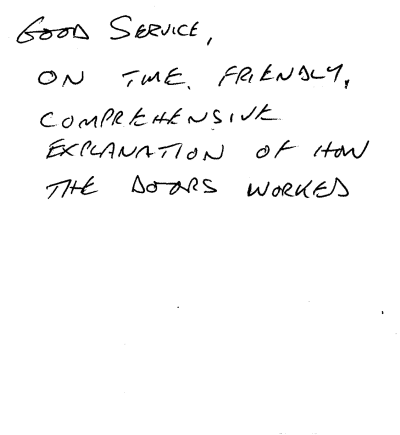 GOOD SERVICE,
ON TIME. FRIENDLY,
COMPREHENSIVE
EXPLANATION OF HOW
THE DOORS WORKED